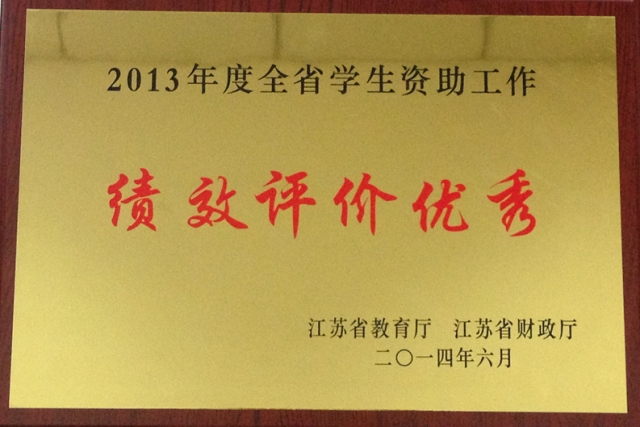 2013年度全省学生资助工作
绩效评价优秀
江苏省教育厅 江苏省财政厅
二〇一四年六月